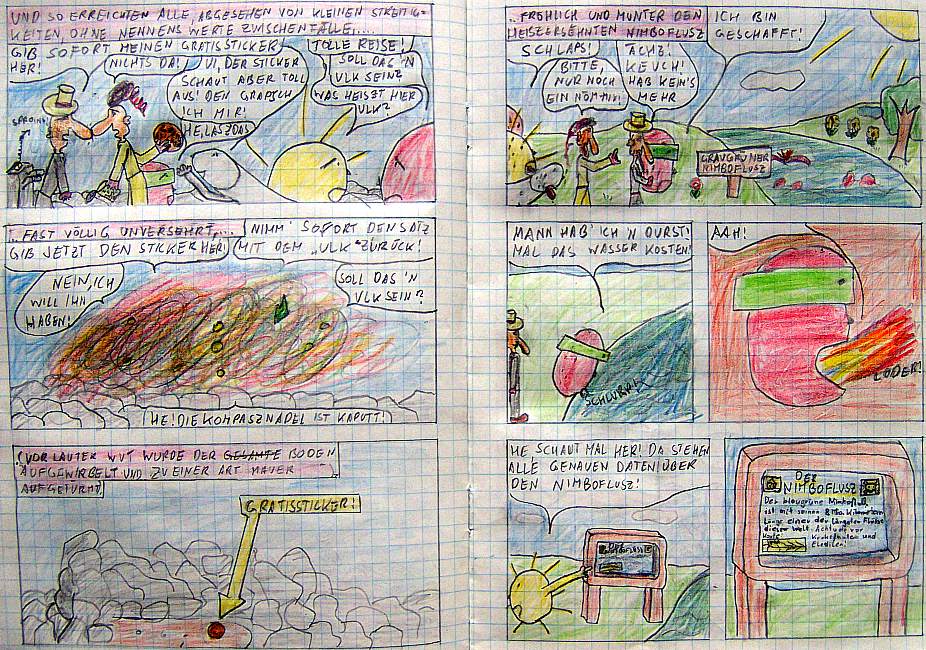 UND SO ERREICHTEN ALLE, ABGESEHEN VON KLEINEN STREITIG=
KEITEN, OHNE NENNENS WERTE ZWISCHENFÄLLE,....
GIB SOFORT MEINEN GRATISSTICKER
HER!
NICHTS DA!
UI, DER STICKER
SCHAUT ABER TOLL
AUS! DEN GRAPSCH
ICH MIR!
HE, LASZ DAS
TOLLE REISE!
SOLL DAS 'N
VLK SEIN?
WAS HEISZT HIER
VLK?
SPROING!
... FAST VÖLLIG UNVERSEHRT,....
GIB JETZT DEN STICKER HER!
NIMM SOFORT DEN SATZ
MIT DEM „VLK" ZURÜCK!
NEIN, ICH
WILL IHN
HABEN!
SOLL DAS 'N
VLK SEIN?
HE! DIE KOMPASZNADEL IST KAPUTT!
(VOR LAUTER WUT WURDE DER GESAMTE BODEN
AUFGEWIRBELT UND ZU EINER ART MAUER
AUFGETÜRMT)
GRATISSTICKER!
..FRÖHLICH UND MUNTER DEN
HEISZERSEHNTEN NIMBOFLUSZ
ICH BIN
GESCHAFFT!
SCHLAPS!
BITTE,
NUR NOCH
EIN
ÄCHZ!
KEUCH!
HAB KEIN'S
MEHR
GRAUGRÜNER
NIMBOFLUSZ
MANN HAB' ICH 'N DURST!
MAL DAS WASSER KOSTEN!
SCHLURF!
AAH!
LODER!
HE SCHAUT MAL HER! DA STEHEN
ALLE GENAUEN DATEN ÜBER
DEN NIMBOFLUSZ!
DER
NIMBOFLUSZ
DER
NIMBOFLUSZ
Der blaugrüne
ist mit seinen Kilometern
Länge einer der längsten Flüsse
dieser Welt. Achtung vor
und